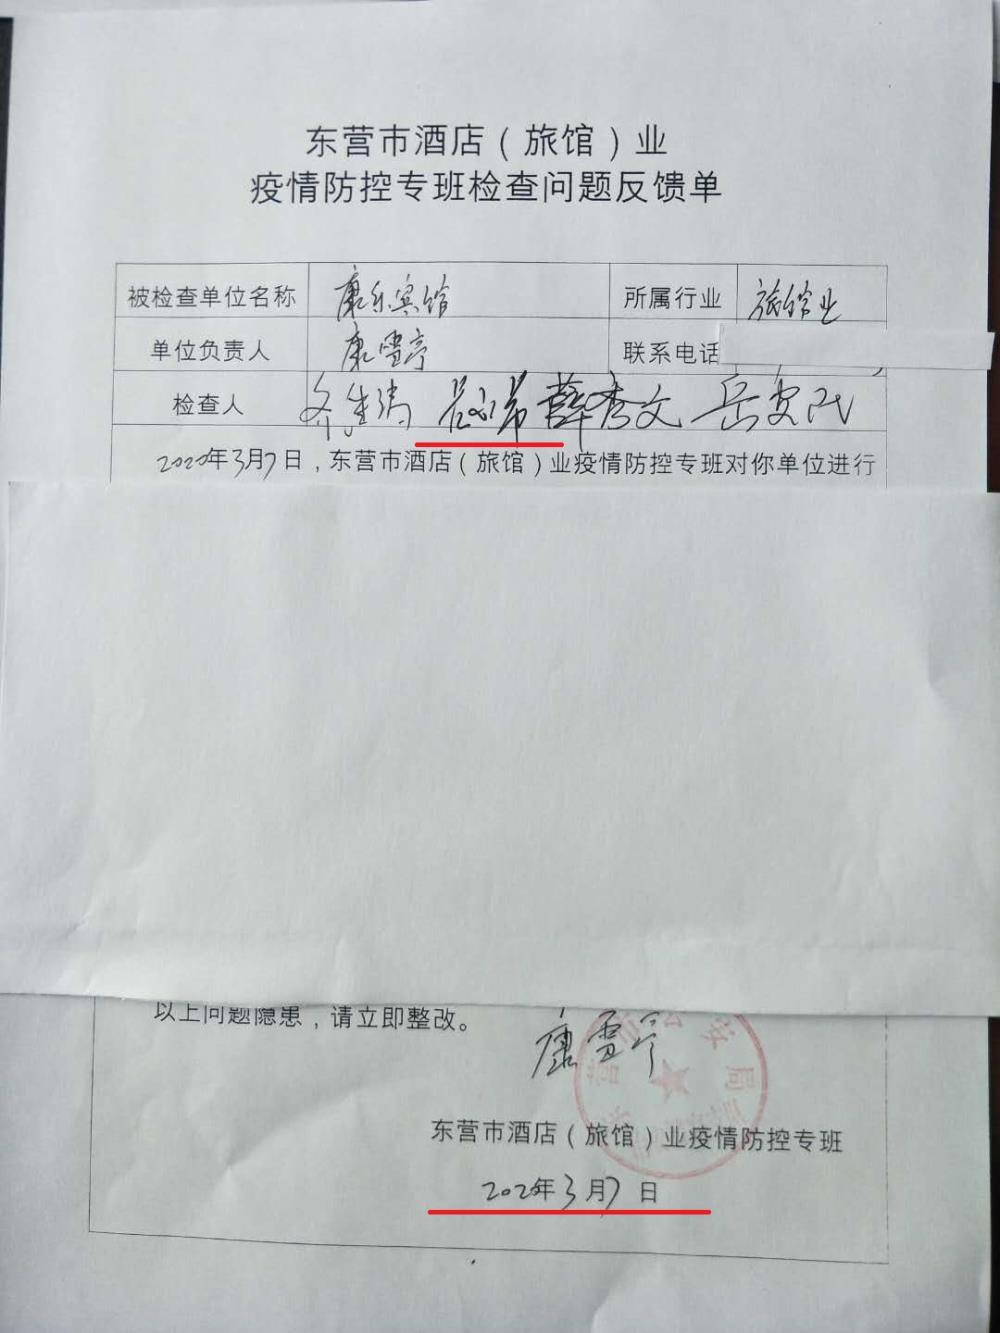 东营市酒店（旅馆）业
疫情防控专班检查问题反馈单
被检查单位名称 康乐宾馆 所属行业 旅馆业
单位负责人 康雪亭 联系电话
检查人 薛秀文 岳安民
2020年3月7日，东营市酒店（旅馆）业疫情防控专班对你单位进行
以上问题隐患，请立即整改。
康雪亭
东营市酒店（旅馆）业疫情防控专班
2020年3月7日